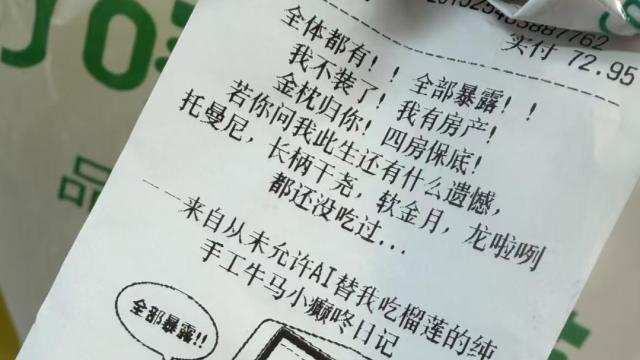 实付 72.95
全体都有!! 全部暴露!!
我不装了! 我有房产!
金枕归你! 四房保底!
若你问我此生还有什么遗憾,
托曼尼, 长柄干尧, 软金月, 龙啦咧
都还没吃过...
——来自从未允许AI替我吃榴莲的纯
手工牛马小癫咚日记
全部暴露!!
品